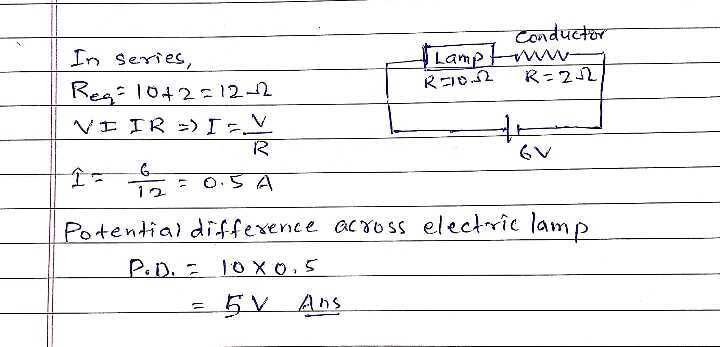 In series,
Req = 10+2 = 12 Ω
V = IR => I = V/R
I = 6/12 = 0.5 A
Conductor
Lamp
R=10 Ω
R = 2 Ω
6V
Potential difference across electric lamp
P.D. = 10 x 0.5
= 5 V Ans